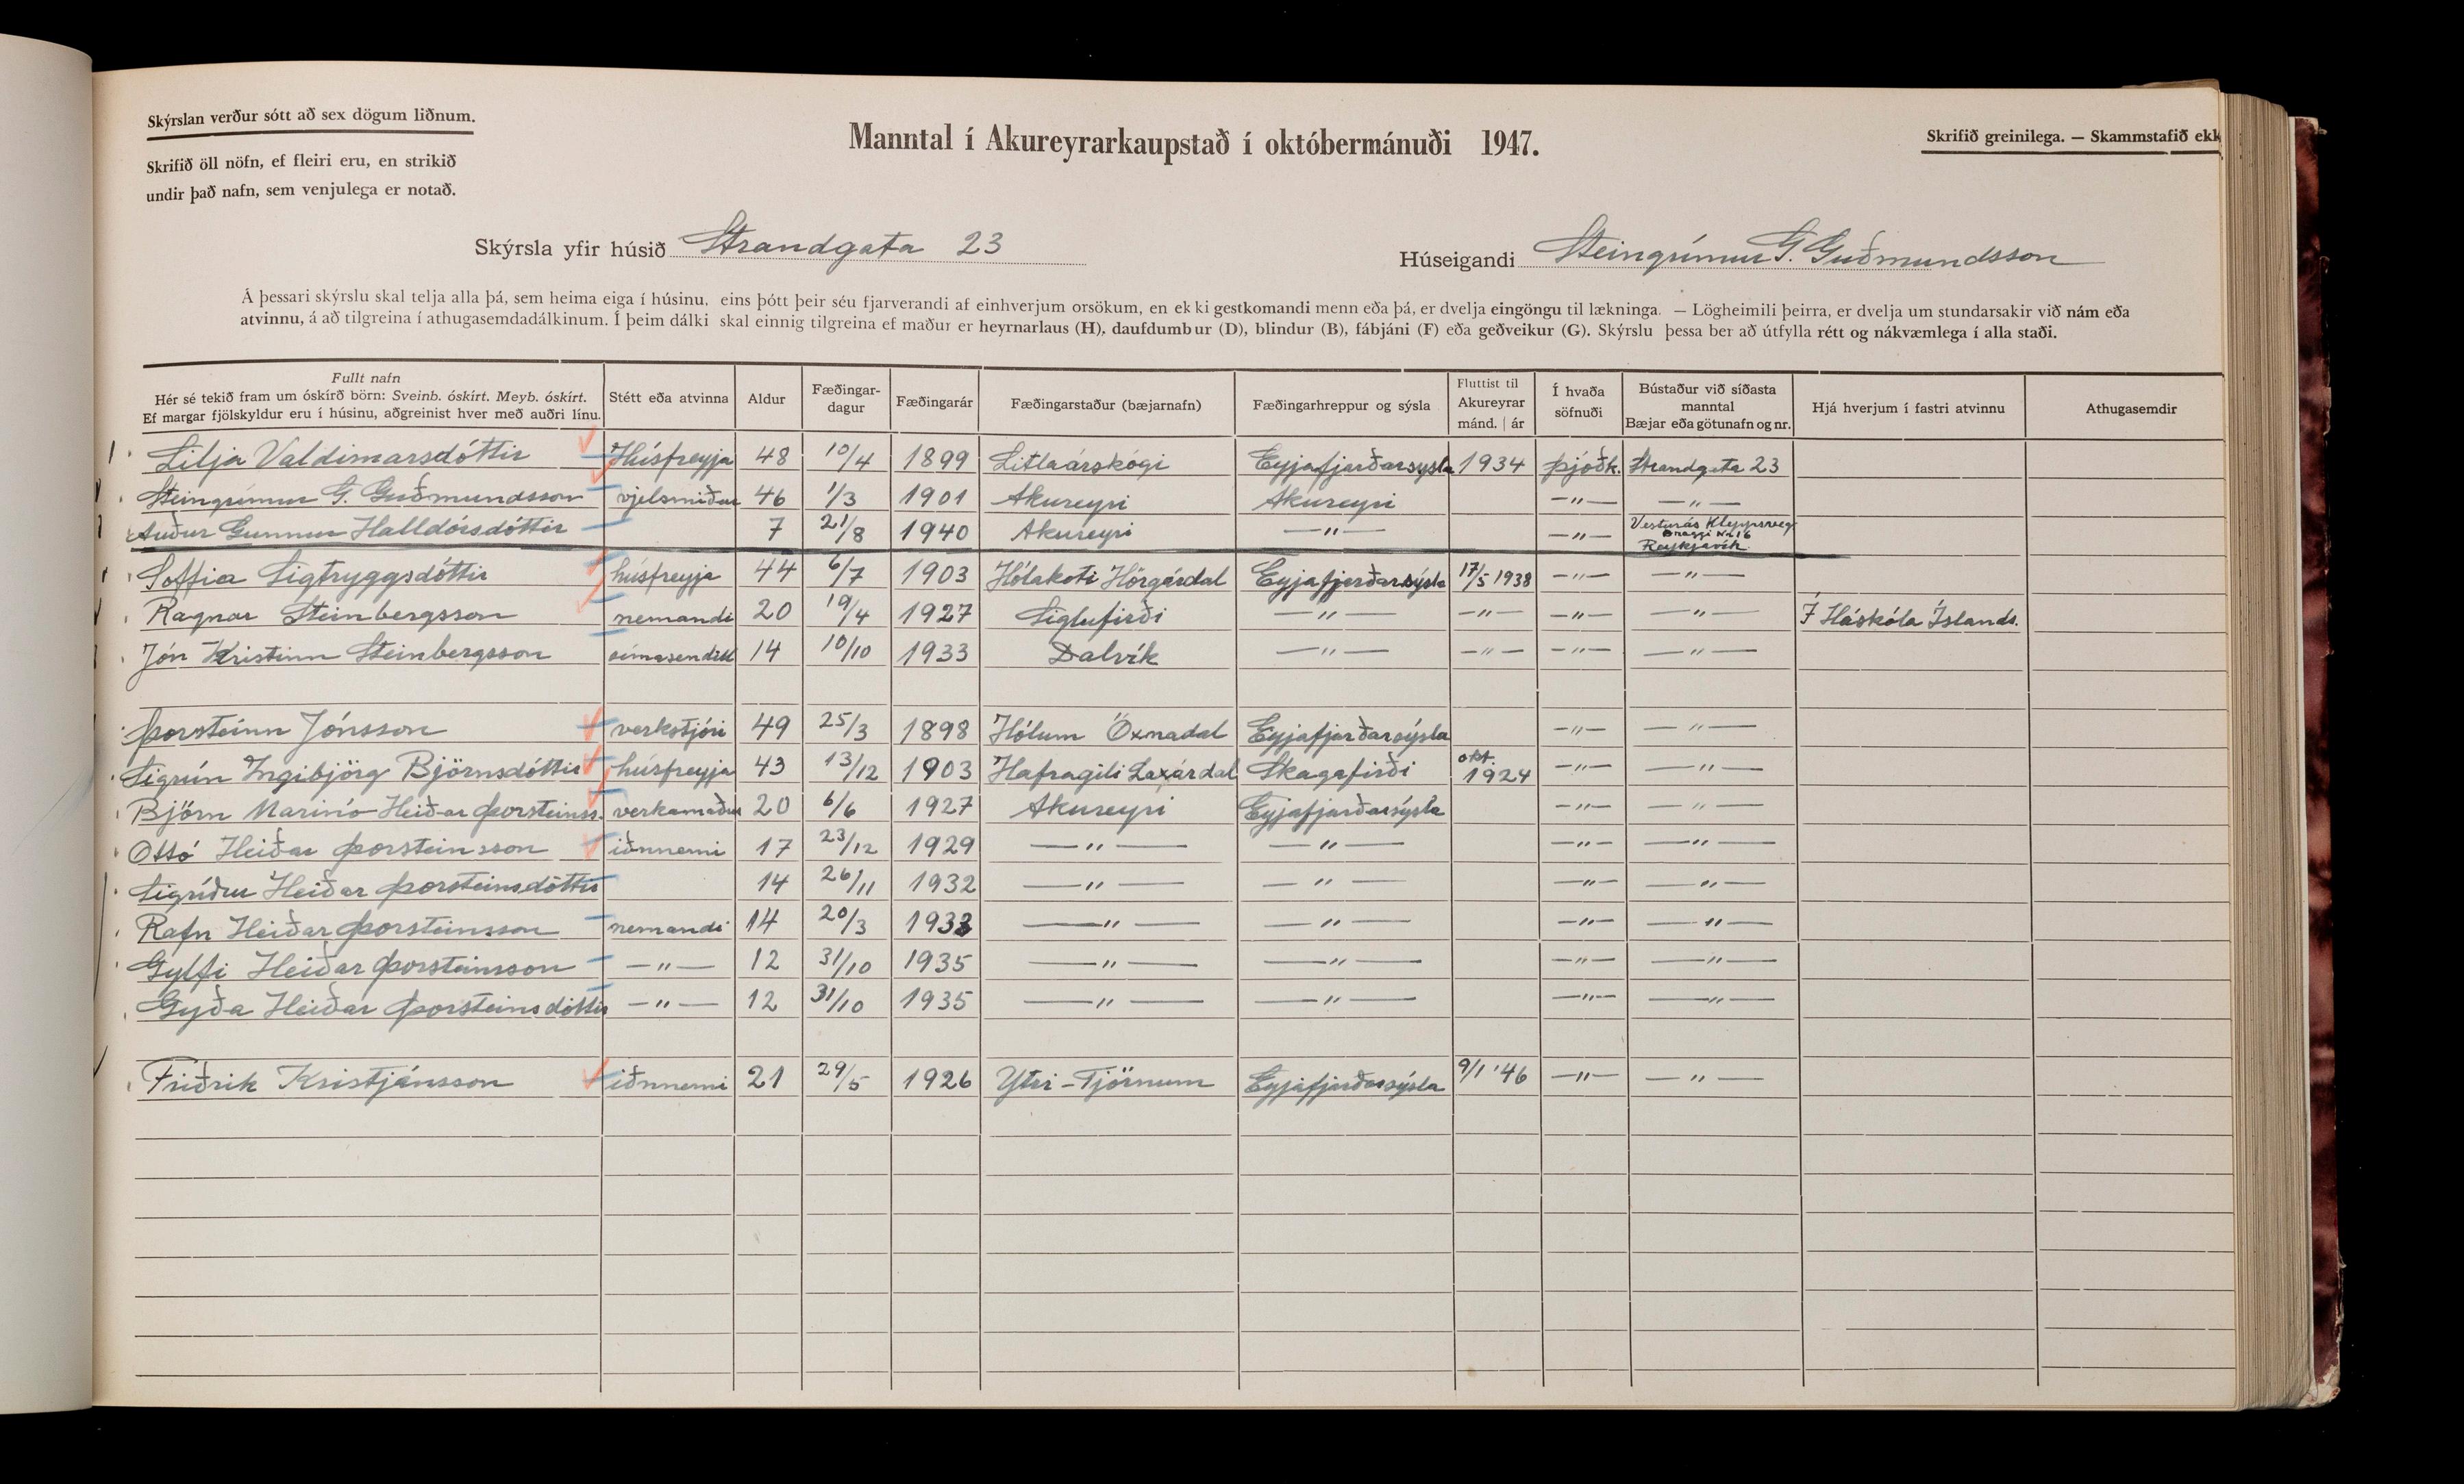 Skýrslan verður sótt að sex dögum liðnum.
Skrifið öll nöfn, ef fleiri eru, en strikið
undir það nafn, sem venjulega er notað.
Manntal í Akureyrarkaupstað í októbermánuði 1947.
Skrifið greinilega. — Skammstafið ekk
Skýrsla yfir húsið Strandgata 23
Húseigandi Steingrímur G. Guðmundsson
Á þessari skýrslu skal telja alla þá, sem heima eiga í húsinu, eins þótt þeir séu fjarverandi af einhverjum orsökum, en ekki gestkomandi menn eða þá, er dvelja eingöngu til lækninga. — Lögheimili þeirra, er dvelja um stundarsakir við nám eða
atvinnu, á að tilgreina í athugasemdadálkinum. Í þeim dálki skal einnig tilgreina ef maður er heyrnarlaus (H), daufdumbur (D), blindur (B), fábjáni (F) eða geðveikur (G). Skýrslu þessa ber að útfylla rétt og nákvæmlega í alla staði.
Fullt nafn
Hér sé tekið fram um óskírð börn: Sveinb. óskírt. Meyb. óskírt.
Ef margar fjölskyldur eru í húsinu, aðgreinist hver með auðri línu.
Stétt eða atvinna
Aldur
Fæðingar-
dagur
Fæðingarár
Fæðingarstaður (bæjarnafn)
Fæðingarhreppur og sýsla
Fluttist til
Akureyrar
mánd. | ár
Í hvaða
söfnuði
Bústaður við síðasta
manntal
Bæjar eða götunafn og nr.
Hjá hverjum í fastri atvinnu
Athugasemdir
Lilja Valdimarsdóttir Húsfreyja 48 10/4 1899 Litlaárskógi Eyjafjarðarsysla 1934 þjóðk. Strandgata 23
Steingrímur G. Guðmundsson vjelsmiður 46 1/3 1901 Akureyri Akureyri —"— —"—
Auður Gunnur Halldórsdóttir 7 21/8 1940 Akureyri —"— —"— Vesturás Kleppsveg
Braggi Nr 16
Reykjavík
Soffia Sigtryggsdóttir húsfreyja 44 6/7 1903 Hólakoti Hörgárdal Eyjafjarðarsýsla 17/5 1938 —"— —"—
Ragnar Steinbergsson nemandi 20 19/4 1927 Siglufirði —"— —"— —"— —"— Í Háskóla Íslands.
Jón Kristinn Steinbergsson símasendill 14 10/10 1933 Dalvík —"— —"— —"— —"—
Þorsteinn Jónsson verkstjóri 49 25/3 1898 Hólum Öxnadal Eyjafjarðarsýsla —"— —"—
Sigrún Ingibjörg Björnsdóttir húsfreyja 43 13/12 1903 Hafragili Laxárdal Skagafirði okt. 1924 —"— —"—
Björn Marinó Heiðar Þorsteinss. verkamaður 20 6/6 1927 Akureyri Eyjafjarðarsýsla —"— —"—
Ottó Heiðar Þorsteinsson iðnnemi 17 23/12 1929 —"— —"— —"— —"—
Sigríður Heiðar Þorsteinsdóttir 14 26/11 1932 —"— —"— —"— —"—
Rafn Heiðar Þorsteinsson nemandi 14 20/3 1933 —"— —"— —"— —"—
Gylfi Heiðar Þorsteinsson —"— 12 31/10 1935 —"— —"— —"— —"—
Gyða Heiðar Þorsteinsdóttir —"— 12 31/10 1935 —"— —"— —"— —"—
Friðrik Kristjánsson iðnnemi 21 29/5 1926 Ytri-Tjörnum Eyjafjarðarsýsla 9/1 '46 —"— —"—